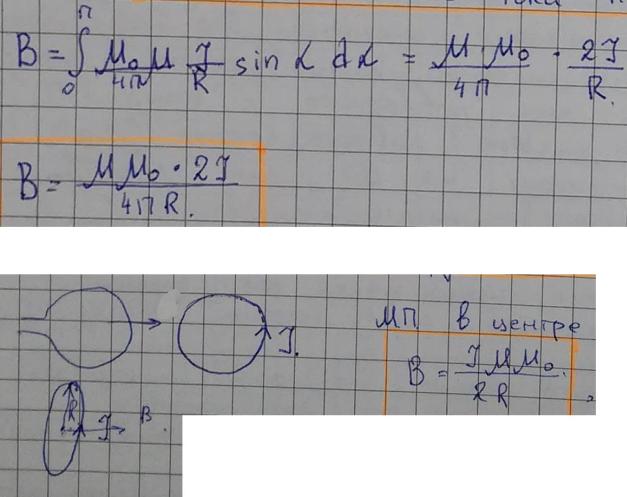 тока
B = ∫₀^π μ₀/4π μ I/R sin α dα = μ·μ₀/4π · 2I/R.
B = μμ₀·2I/4πR.
I.
МП в центре
B = Iμμ₀/2R.
R I B.